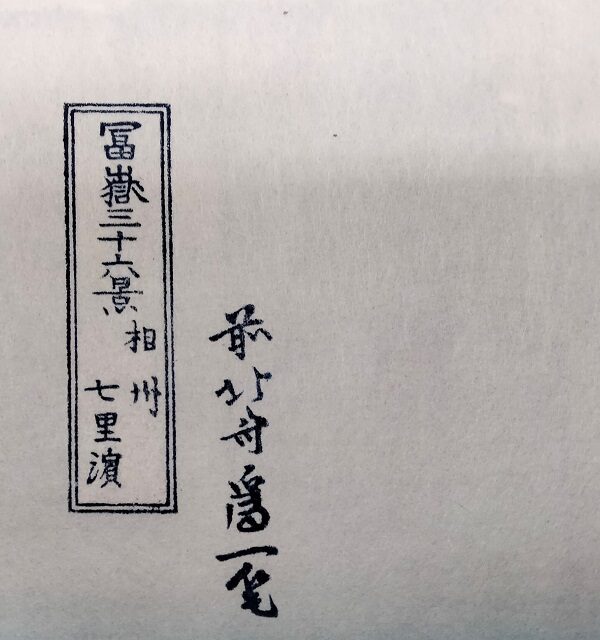 冨嶽三十六景
相州
七里濱
前北斎爲一筆